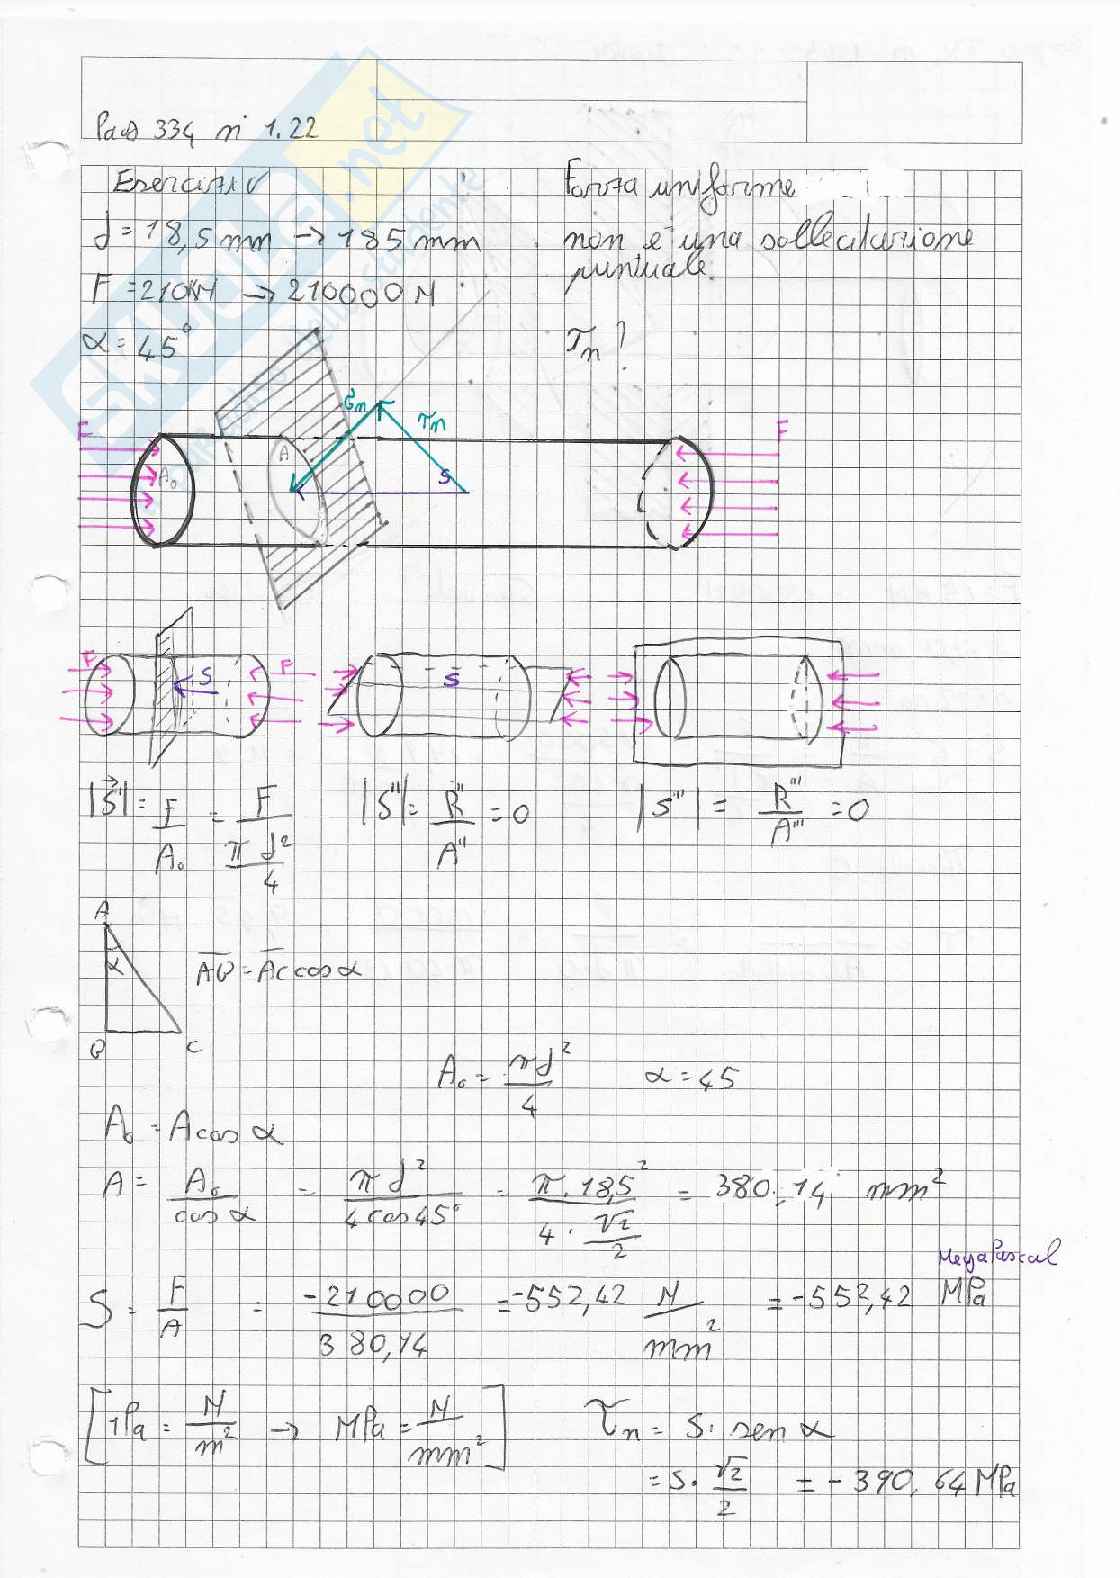 Pag 334 n° 1.22
Esercizio
d = 18,5 mm → 185 mm
F = 210 → 210000 N
α = 45°
Forza uniforme
non è una sollecitazione
puntuale.
τn ?
F
A₀
A
σn
τn
S
F
F
S
F
S
|S'| = F/A₀ = F/(πd²/4)
|S''| = R''/A'' = 0
|S'''| = R'''/A''' = 0
A
α
B
C
AB = AC cos α
A₀ = πd²/4
α = 45
A₀ = A cos α
A = A₀/cos α = πd²/(4 cos 45°) = π · 18,5²/(4 · √2/2) = 380,14 mm²
MegaPascal
S = F/A = -210000/380,14 = -552,42 N/mm² = -552,42 MPa
[1Pa = N/m² → MPa = N/mm²]
τn = S · sen α
= S · √2/2 = - 390,64 MPa
SKUOLA.net